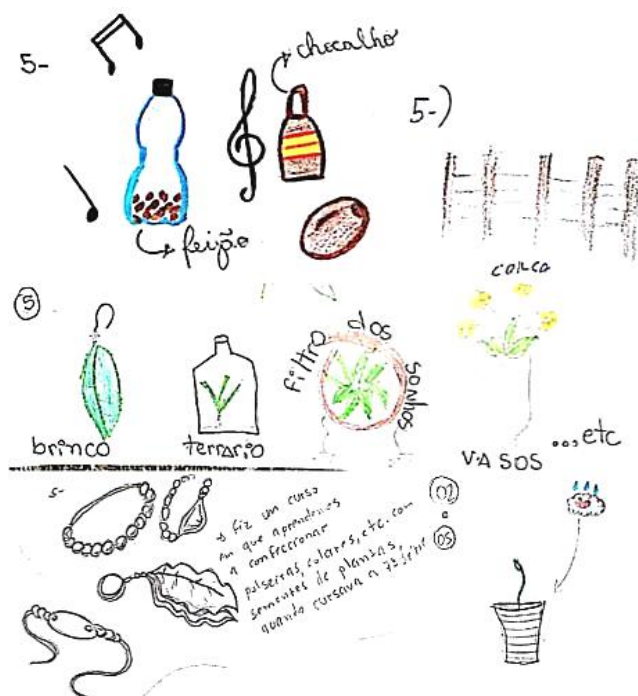 5-
chocalho
feijão
5-)
CERCA
5
brinco
terrário
filtro dos sonhos
VASOS
...etc
5-
→ fiz um curso
em que aprendemos
a confeccionar
pulseiras, colares, etc. com
sementes de plantas,
quando cursava a 7ª série
02
e
05